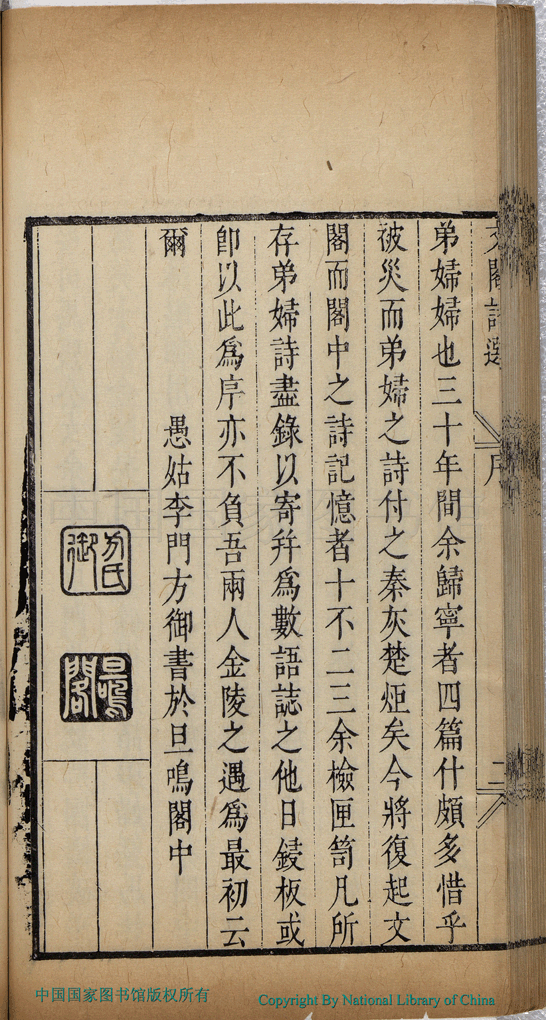 文閣詩選
序
二
弟婦婦也三十年間余歸寧者四篇什頗多惜乎
被災而弟婦之詩付之秦灰楚炬矣今將復起文
閣而閣中之詩記憶者十不二三余檢匣笥凡所
存弟婦詩盡錄以寄幷爲數語誌之他日鋟板或
卽以此爲序亦不負吾兩人金陵之遇爲最初云
爾
愚姑李門方御書於旦鳴閣中
方氏御
旦鳴閣
中国国家图书馆版权所有
Copyright By National Library of China